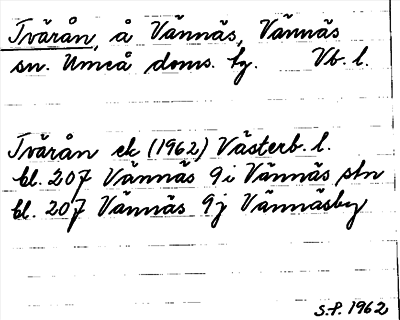 Tvärån, å Vännäs, Vännäs
sn. Umeå doms. by. Vb. l.
Tvärån ek (1962) Västerb. l.
bl. 207 Vännäs 9i Vännäs stn
bl. 207 Vännäs 9j Vännäsby
S.F. 1962